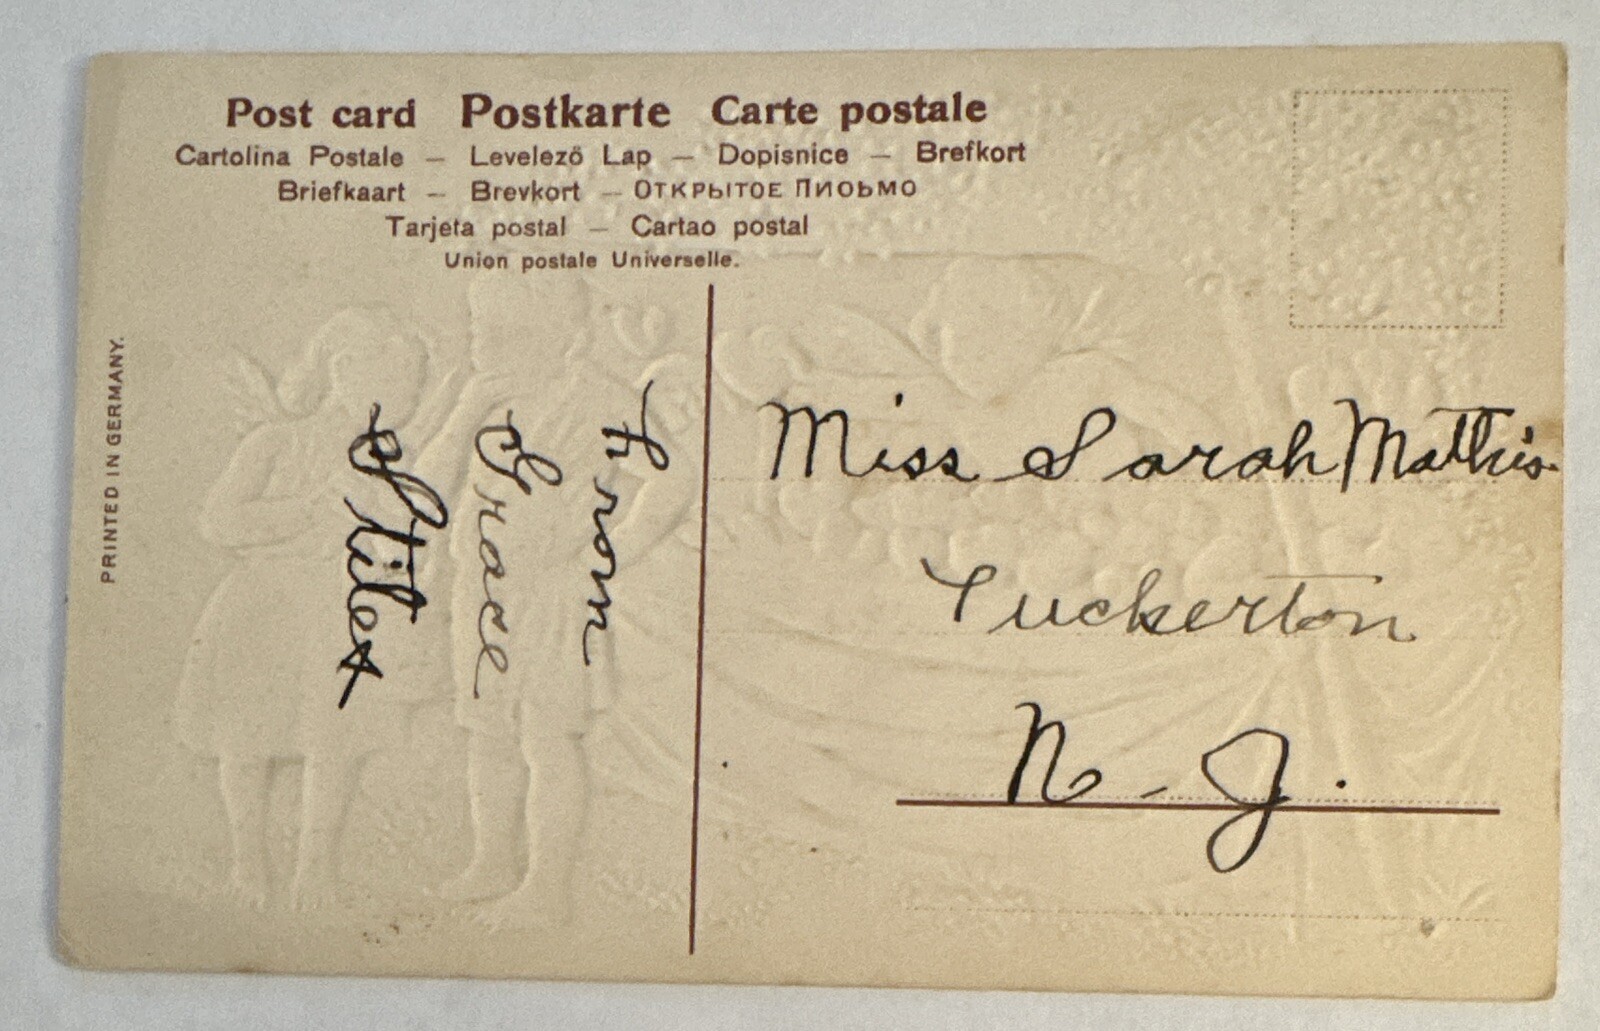 Post card Postkarte Carte postale
Cartolina Postale – Levelező Lap – Dopisnice – Brefkort
Briefkaart – Brevkort – ОТКРЫТОЕ ПИОЬМО
Tarjeta postal – Cartao postal
Union postale Universelle.
PRINTED IN GERMANY.
From
Grace
Stiles
Miss Sarah Mathis.
Tuckerton
N. - J.